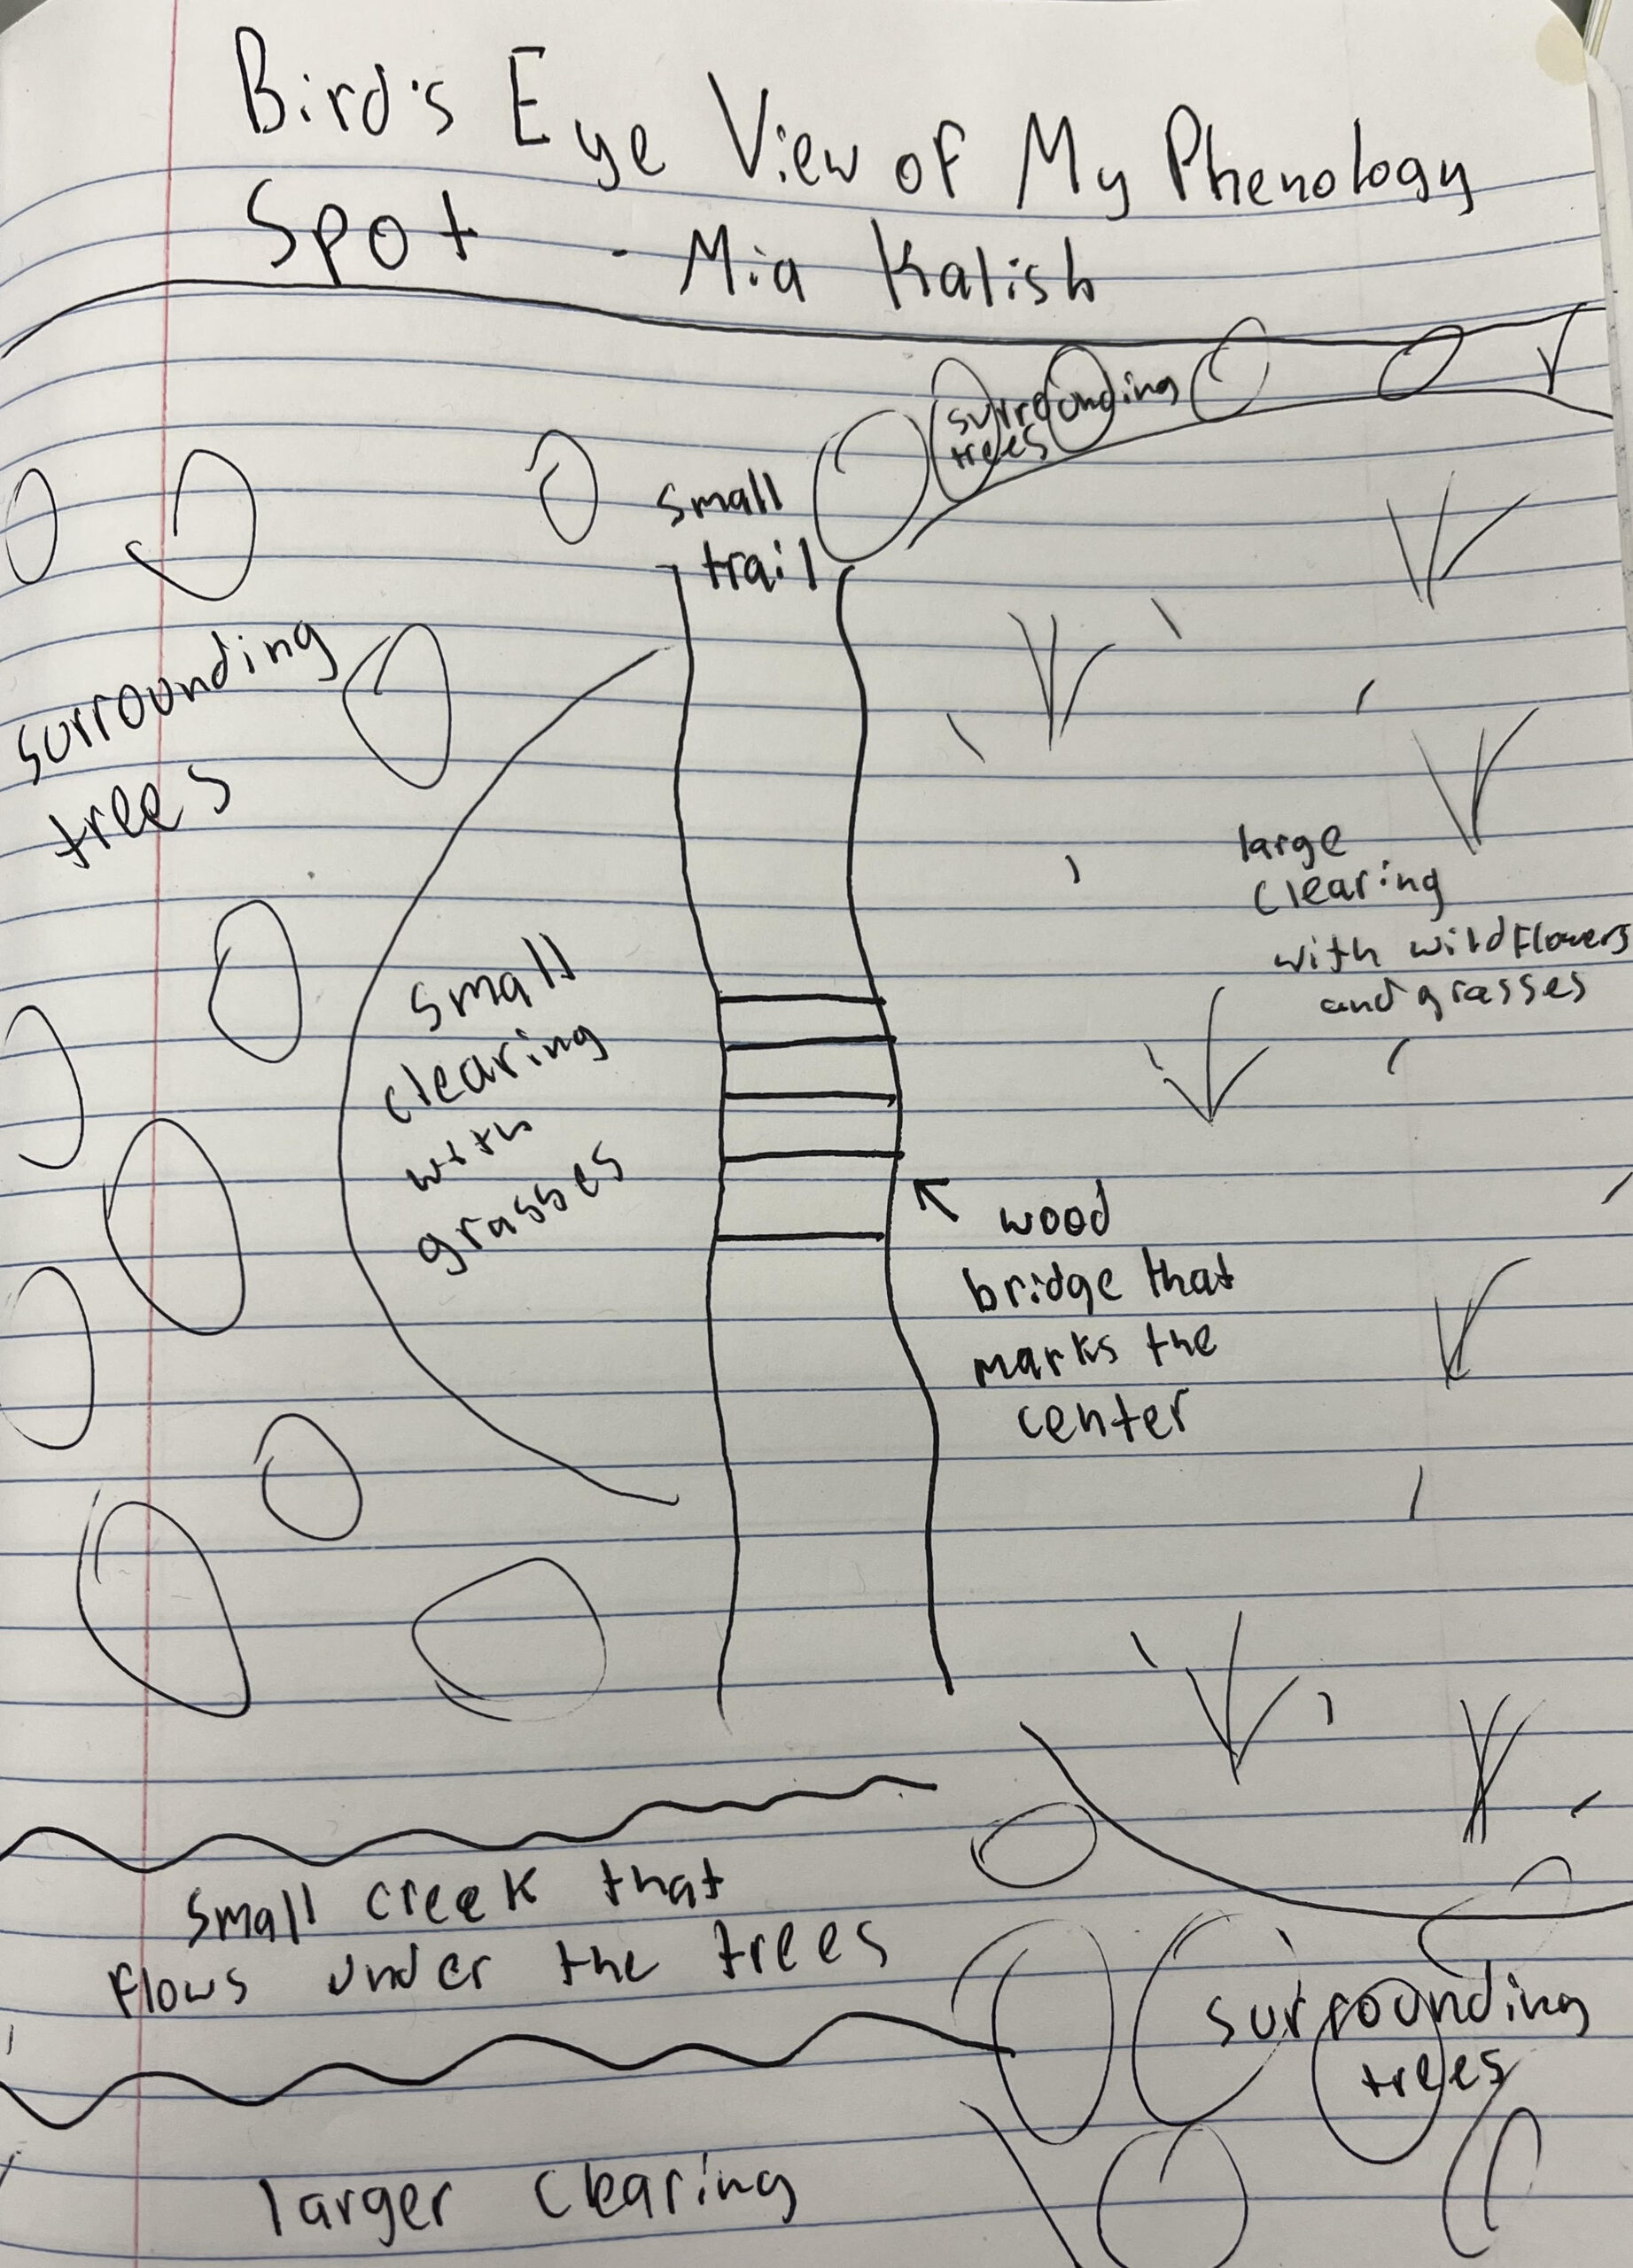 Bird's Eye View of My Phenology
Spot - Mia Kalish
surrounding
trees
small
trail
surrounding
trees
large
clearing
with wildflowers
and grasses
small
clearing
with
grasses
wood
bridge that
marks the
center
small creek that
flows under the trees
surrounding
trees
larger clearing